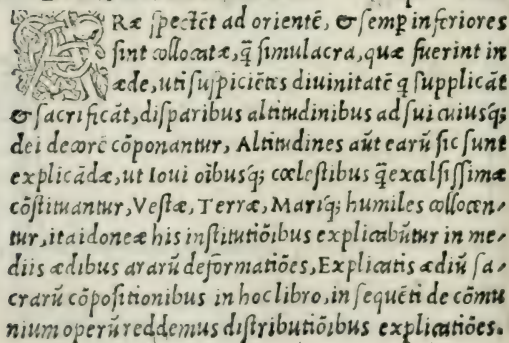 ARæ ſpectēt ad orientē, & ſemp̲ inferiores
ſint collocatæ, q̃ ſimulacra, quæ fuerint in
æde, uti ſuſpiciētes diuinitatē q ſupplicāt
& ſacrificāt, diſparibus altitudinibus ad ſui cuiusq;
dei decorē cōponantur, Altitudines aūt earū ſic ſunt
explicādæ, ut Ioui oībusq; cœleſtibus q̃ excalſiſſimæ
cōſtituantur, Veſtæ, Terræ, Mariq; humiles collocen-
tur, ita idoneæ his inſtitutiōibus explicabūtur in me-
diis ædibus ararū deformatiōes, Explicatis ædiū ſa-
crarū cōpoſitionibus in hoc libro, in ſequēti de cōmu
nium operū reddemus diſtributiōibus explicatiōes.